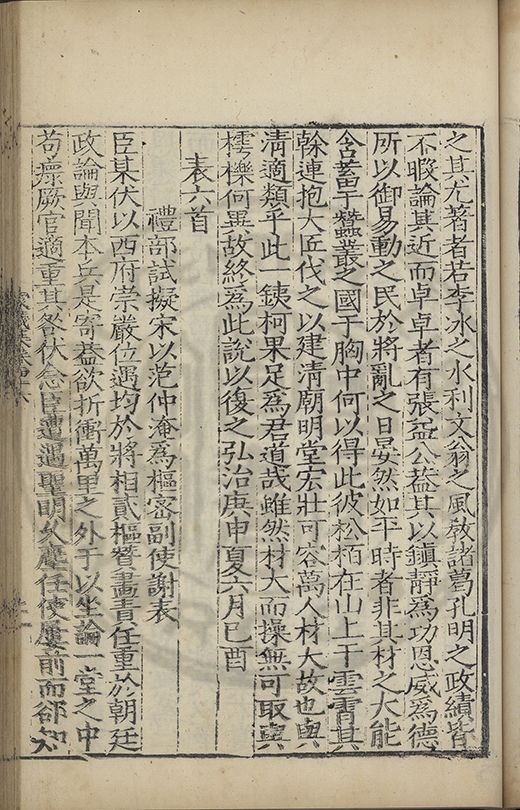 之其尤著者若李冰之水利文翁之風敎諸葛孔明之政績皆
不暇論其近而卓卓者有張益公葢其以鎭靜爲功恩威爲德
所以御易動之民於將亂之日晏然如平時者非其材之大能
含畜千蠶叢之國于胸中何以得此彼松栢在山上干雲霄其
榦連抱大匠伐之以建清廟明堂宏壯可容萬人材大故也與
淸適類乎此一銕柯果足爲君道哉雖然材大而操無可取與
樗櫟何異故終爲此說以復之弘治庚申夏六月己酉
表六首
禮部試擬宋以范仲淹爲樞密副使謝表
臣某伏以西府崇嚴位遇均於將相貳樞贊畫責任重於朝廷
政論與聞本兵是寄葢欲折衝萬里之外于以坐論一堂之中
苟瘝厥官適重其咎伏念臣遭遇聖明久塵任使屢前而郤知